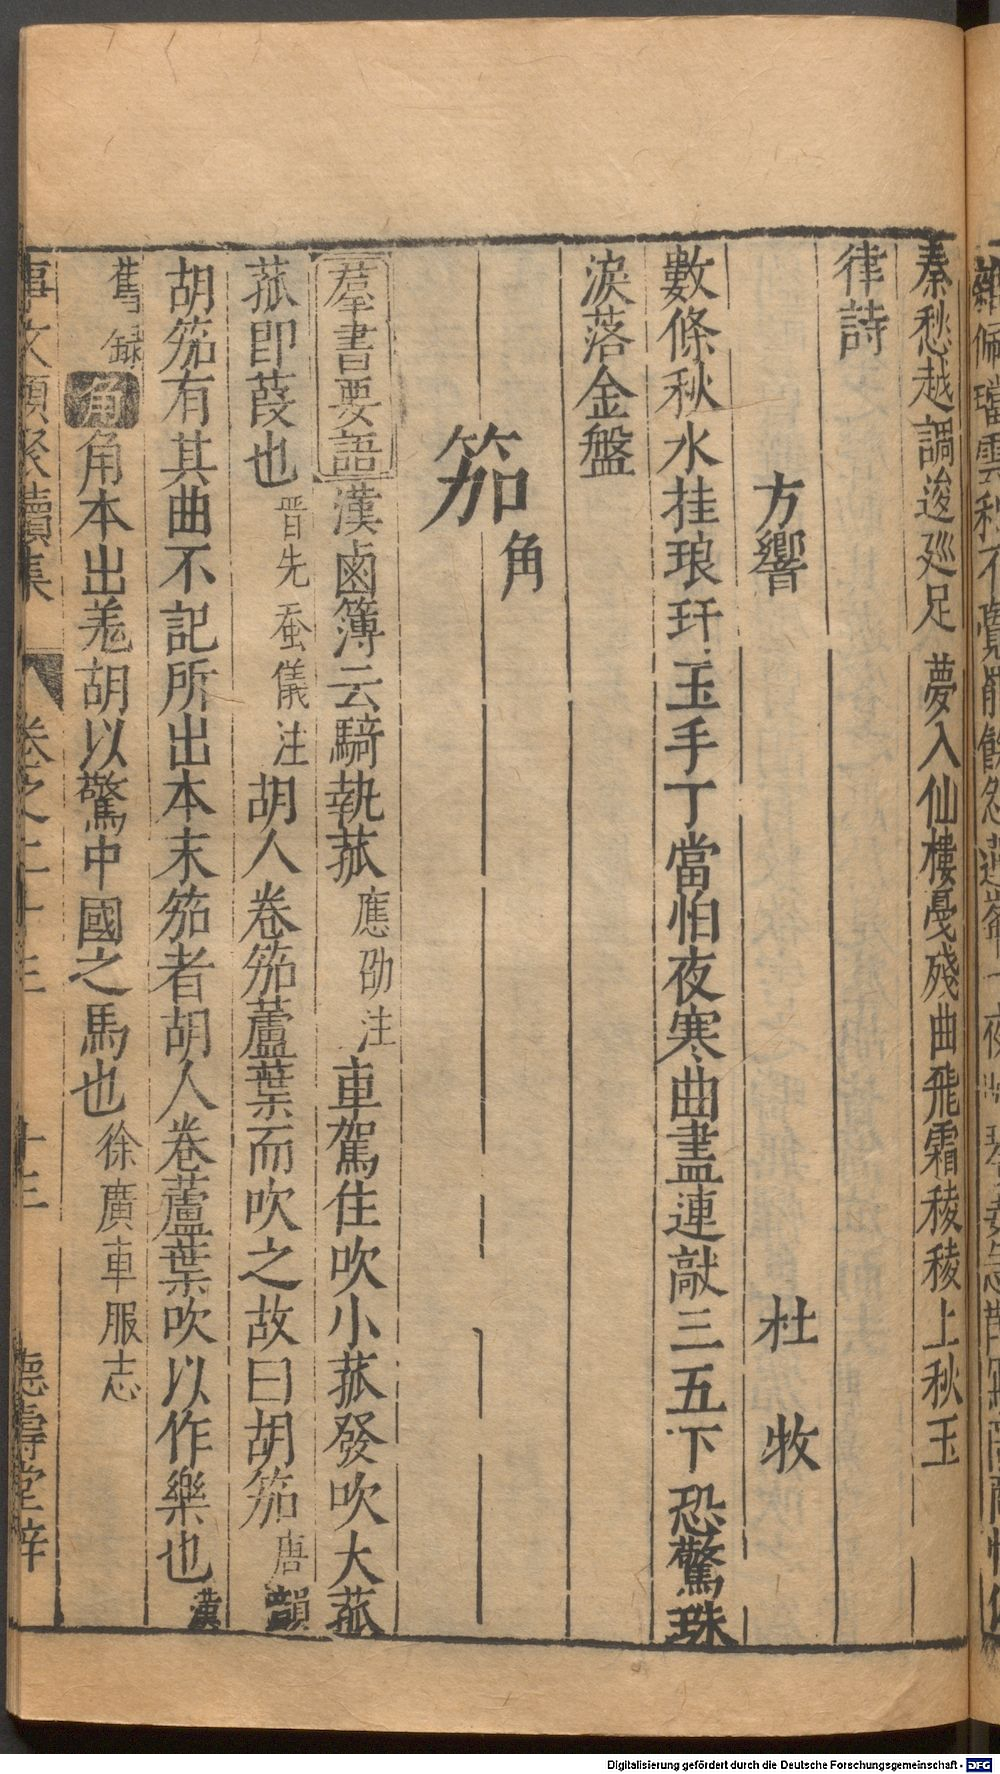 秦愁越調逡廵足 夢入仙樓戞殘曲飛霜稜稜上秋玉
律詩
方響 杜牧
數條秋水挂琅玕玉手丁當怕夜寒曲盡連敲三五下恐驚珠
淚落金盤
笳 角
羣書要語 漢鹵簿云騎執菰 應劭注 車駕住吹小菰發吹大菰
菰即葭也 晋先蚕儀注 胡人卷笳蘆葉而吹之故曰胡笳 唐韻
胡笳有其曲不記所出本末笳者胡人卷蘆葉吹以作樂也 漢
舊録 角 角本出羗胡以驚中國之馬也 徐廣車服志
事文類聚續集 卷之二十三 十三 德壽堂梓
Digitalisierung gefördert durch die Deutsche Forschungsgemeinschaft - DFG